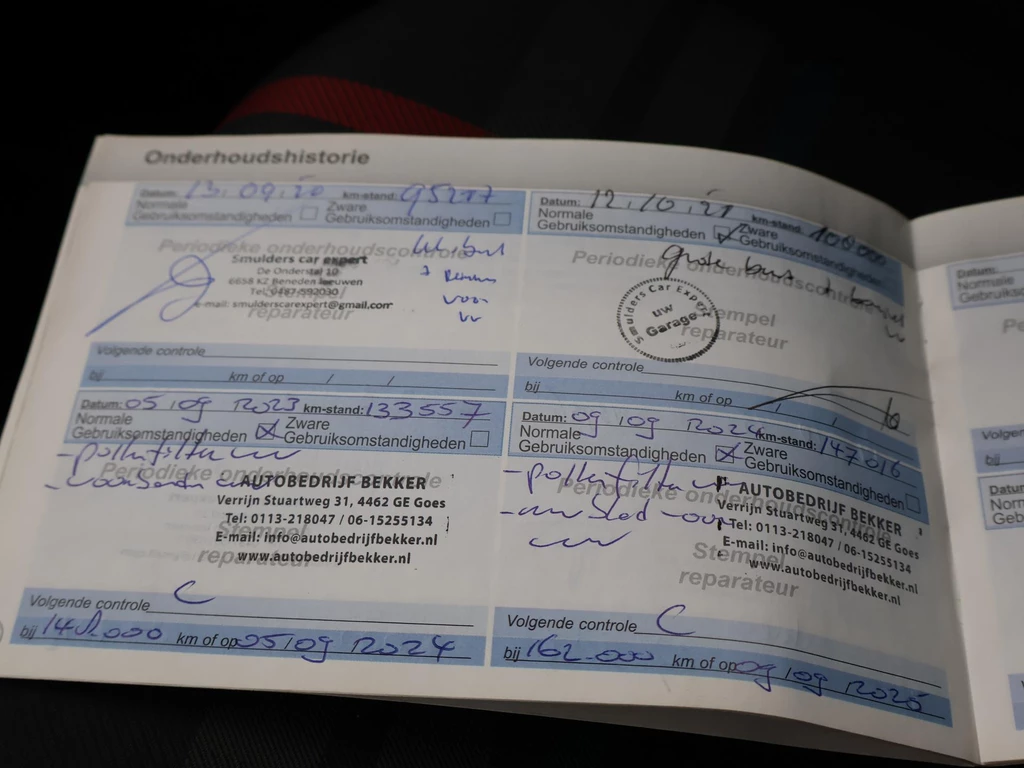 Onderhoudshistorie
Datum: 13.09.20 km-stand: 95217
Normale Gebruiksomstandigheden Zware Gebruiksomstandigheden
Periodieke onderhoudscontrole
Smulders car expert
De Onderstal 10
6658 KZ Beneden leeuwen
Tel. 0487-592030
e-mail: smulderscarexpert@gmail.com
Stempel
reparateur
voor
Volgende controle
bij km of op / /
Datum: 12.10.21 km-stand: 100000
Normale Gebruiksomstandigheden Zware Gebruiksomstandigheden
Grote beurt +
Periodieke onderhoudscontrole
Smulders Car Expert
uw
Garage
Stempel
reparateur
Volgende controle
bij km of op / /
Datum: 05/09/2023 km-stand: 133557
Normale Gebruiksomstandigheden Zware Gebruiksomstandigheden
- pollenfilter
Periodieke onderhoudscontrole
AUTOBEDRIJF BEKKER
Verrijn Stuartweg 31, 4462 GE Goes
Tel: 0113-218047 / 06-15255134
E-mail: info@autobedrijfbekker.nl
www.autobedrijfbekker.nl
Stempel
reparateur
Volgende controle C
bij 148.000 km of op 05/09/2024
Datum: 09/09/2024 km-stand: 147016
Normale Gebruiksomstandigheden Zware Gebruiksomstandigheden
- pollenfilter
Periodieke onderhoudscontrole
AUTOBEDRIJF BEKKER
Verrijn Stuartweg 31, 4462 GE Goes
Tel: 0113-218047 / 06-15255134
E-mail: info@autobedrijfbekker.nl
www.autobedrijfbekker.nl
Stempel
reparateur
Volgende controle C
bij 162.000 km of op 09/09/2025
Datum:
Normale
Volgen
bij
Datum
Norm
Geb